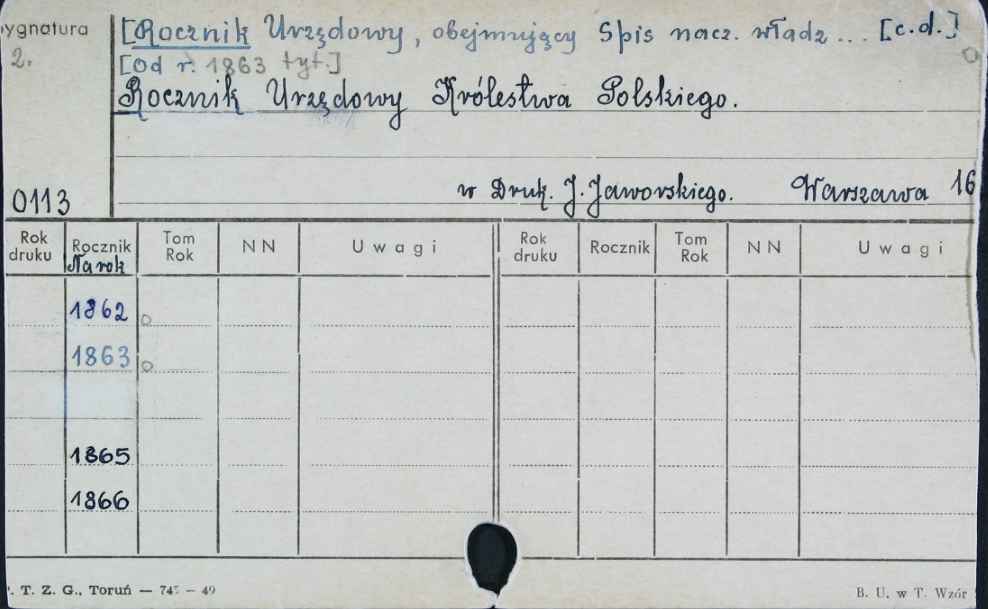 ygnatura
2.
[Rocznik Urzędowy, obejmujący Spis nacz. władz ... [c.d.]
[Od r. 1863 tyt.]
Rocznik Urzędowy Królestwa Polskiego.
0113
w Druk. J. Jaworskiego. Warszawa 16
Rok druku Rocznik Na rok Tom Rok N N Uwagi Rok druku Rocznik Tom Rok N N Uwagi
1862
1863
1865
1866
. T. Z. G., Toruń — 745 — 49
B. U. w T. Wzór